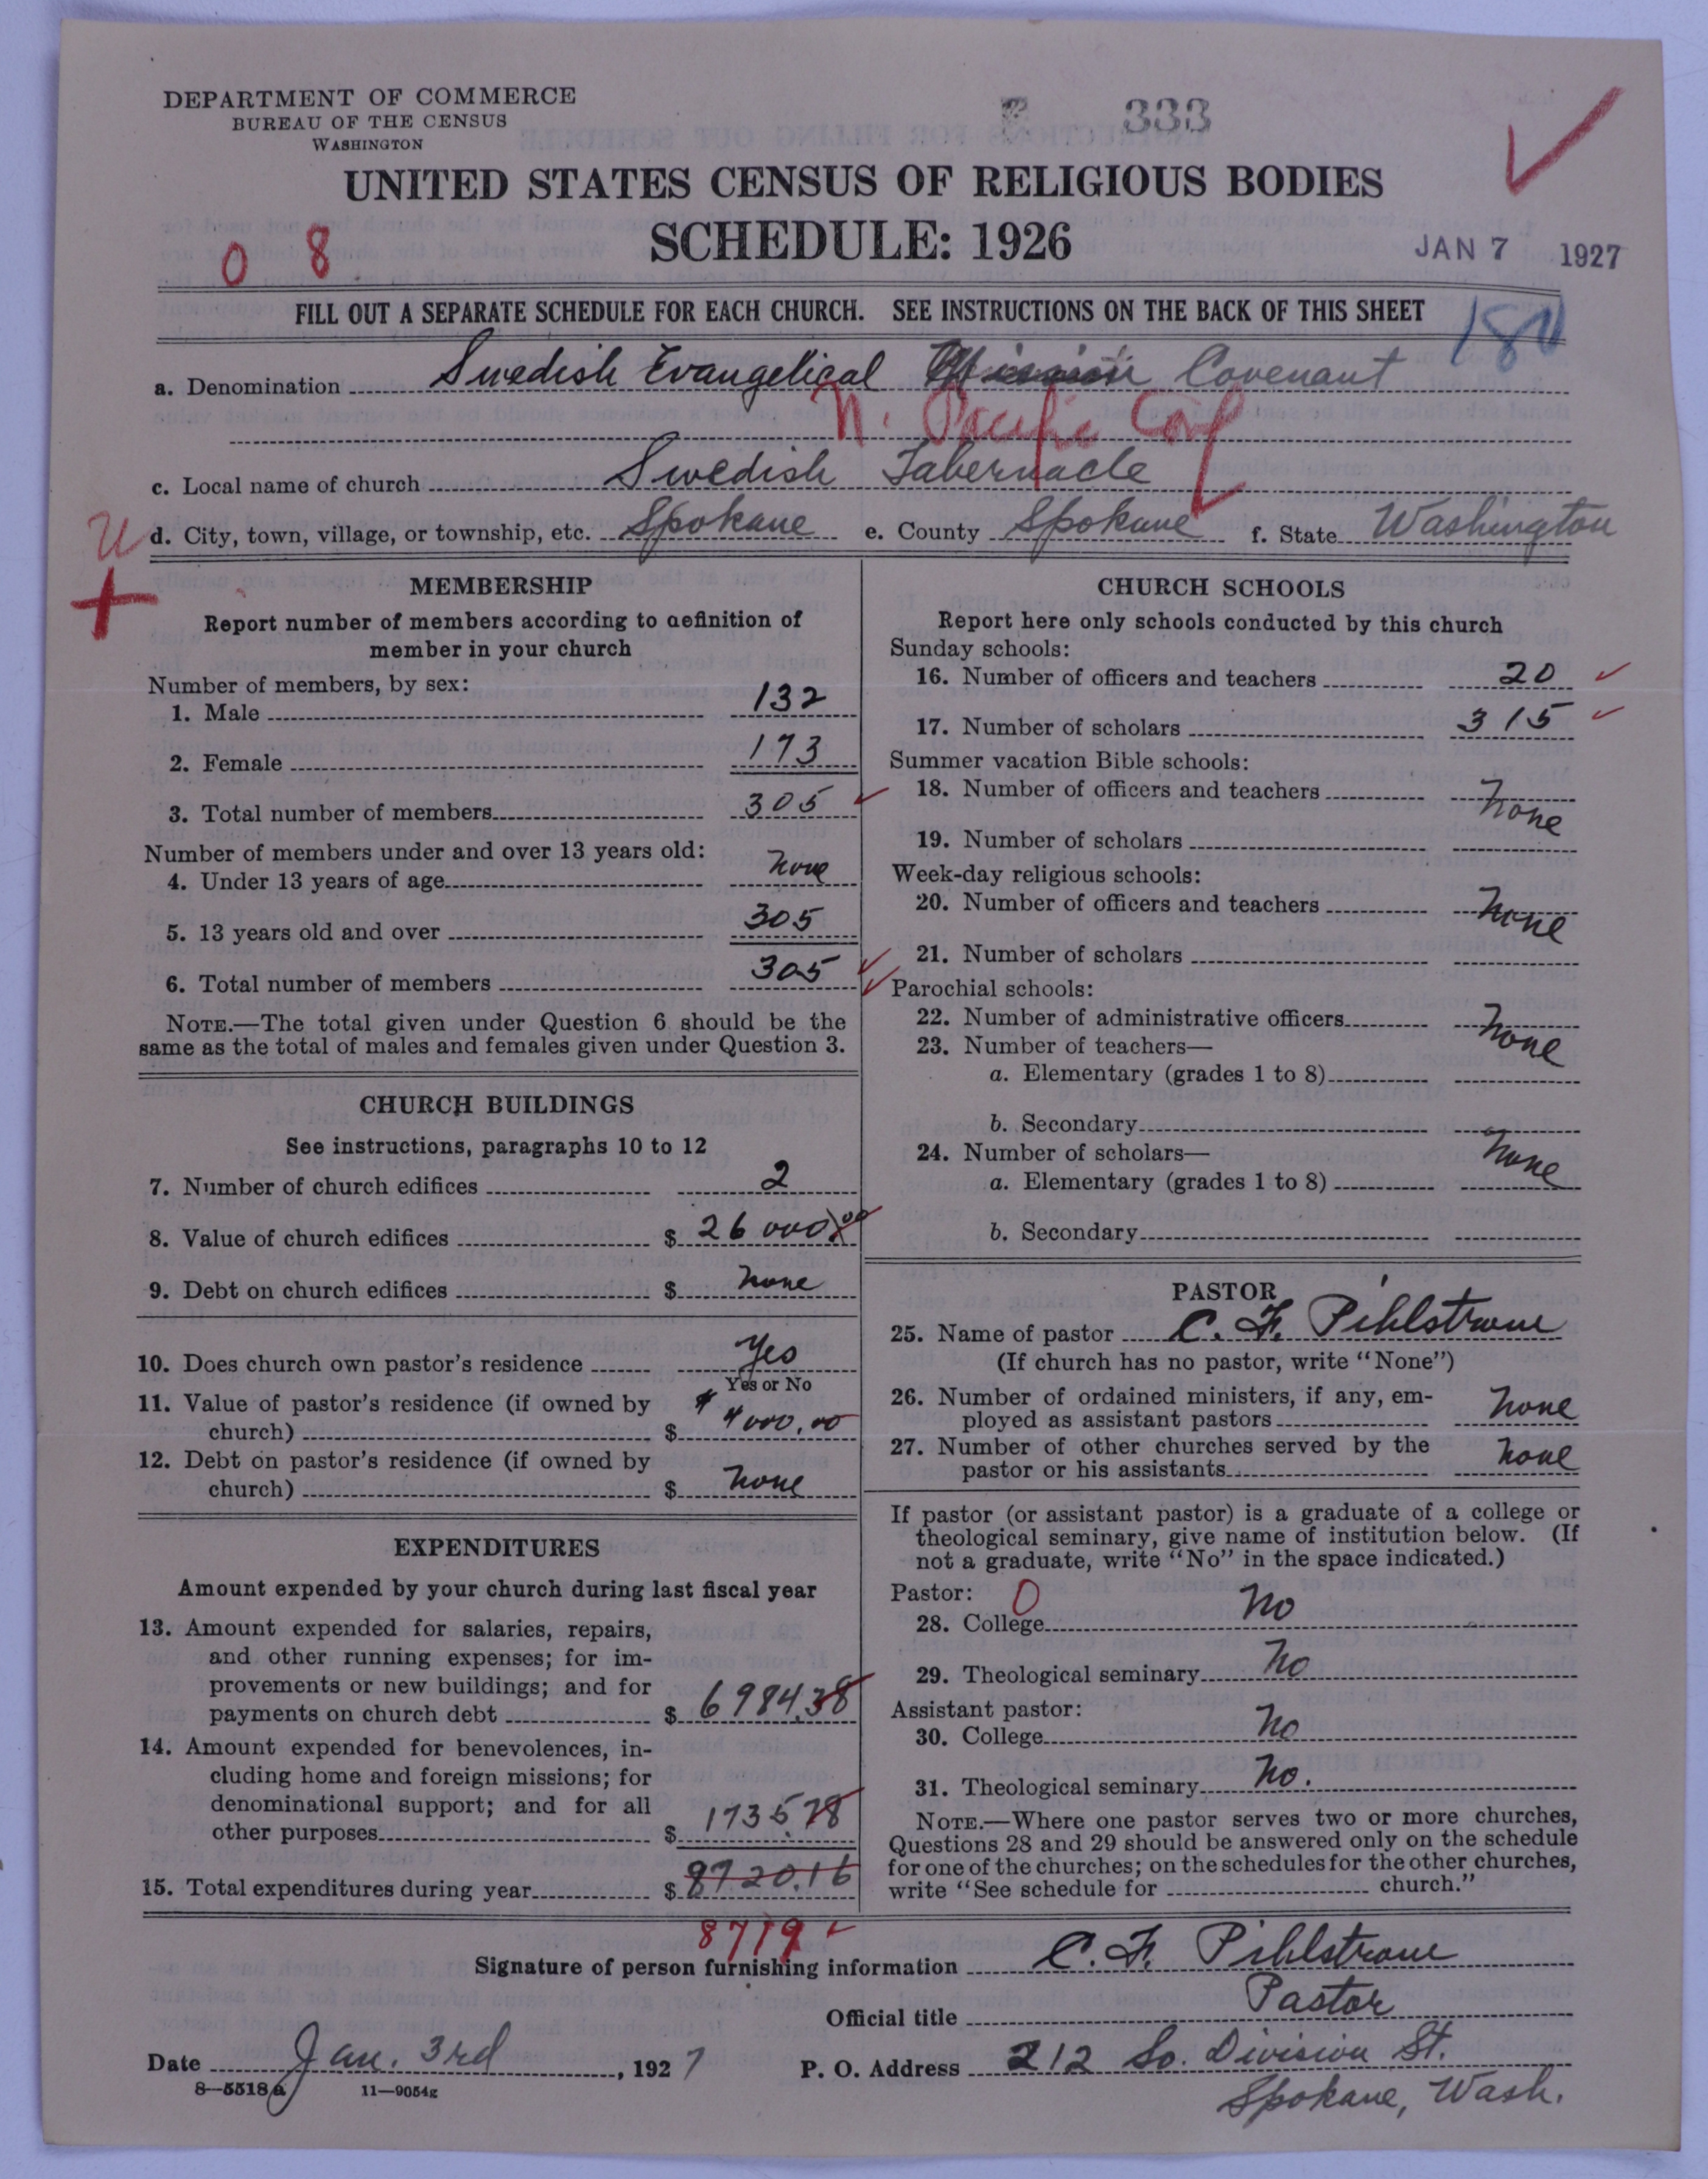 DEPARTMENT OF COMMERCE
BUREAU OF THE CENSUS
WASHINGTON
333
UNITED STATES CENSUS OF RELIGIOUS BODIES
SCHEDULE: 1926
0 8
JAN 7 1927
FILL OUT A SEPARATE SCHEDULE FOR EACH CHURCH. SEE INSTRUCTIONS ON THE BACK OF THIS SHEET
a. Denomination Swedish Evangelical Mission Covenant
N. Pacific Conf
c. Local name of church Swedish Tabernacle
U
d. City, town, village, or township, etc. Spokane e. County Spokane f. State Washington
MEMBERSHIP
Report number of members according to definition of
member in your church
Number of members, by sex:
1. Male 132
2. Female 173
3. Total number of members 305
Number of members under and over 13 years old:
4. Under 13 years of age None
5. 13 years old and over 305
6. Total number of members 305
NOTE.—The total given under Question 6 should be the
same as the total of males and females given under Question 3.
CHURCH BUILDINGS
See instructions, paragraphs 10 to 12
7. Number of church edifices 2
8. Value of church edifices $ 26 000.00
9. Debt on church edifices $ None
10. Does church own pastor's residence Yes
Yes or No
11. Value of pastor's residence (if owned by
church) $ $ 4000.00
12. Debt on pastor's residence (if owned by
church) $ None
EXPENDITURES
Amount expended by your church during last fiscal year
13. Amount expended for salaries, repairs,
and other running expenses; for im-
provements or new buildings; and for
payments on church debt $ 6984.38
14. Amount expended for benevolences, in-
cluding home and foreign missions; for
denominational support; and for all
other purposes $ 1735.78
15. Total expenditures during year $ 8720.16
8719
CHURCH SCHOOLS
Report here only schools conducted by this church
Sunday schools:
16. Number of officers and teachers 20
17. Number of scholars 315
Summer vacation Bible schools:
18. Number of officers and teachers None
19. Number of scholars
Week-day religious schools:
20. Number of officers and teachers None
21. Number of scholars
Parochial schools:
22. Number of administrative officers None
23. Number of teachers—
a. Elementary (grades 1 to 8)
b. Secondary
24. Number of scholars— None
a. Elementary (grades 1 to 8)
b. Secondary
PASTOR
25. Name of pastor C. F. Pihlstrom
(If church has no pastor, write "None")
26. Number of ordained ministers, if any, em-
ployed as assistant pastors None
27. Number of other churches served by the
pastor or his assistants None
If pastor (or assistant pastor) is a graduate of a college or
theological seminary, give name of institution below. (If
not a graduate, write "No" in the space indicated.)
Pastor: 0
28. College No
29. Theological seminary No
Assistant pastor:
30. College No
31. Theological seminary No.
NOTE.—Where one pastor serves two or more churches,
Questions 28 and 29 should be answered only on the schedule
for one of the churches; on the schedules for the other churches,
write "See schedule for church."
Signature of person furnishing information C. F. Pihlstrom
Official title Pastor
Date Jan. 3rd, 1927 P. O. Address 212 So. Division St.
Spokane, Wash.
8—5518a 11—9054g